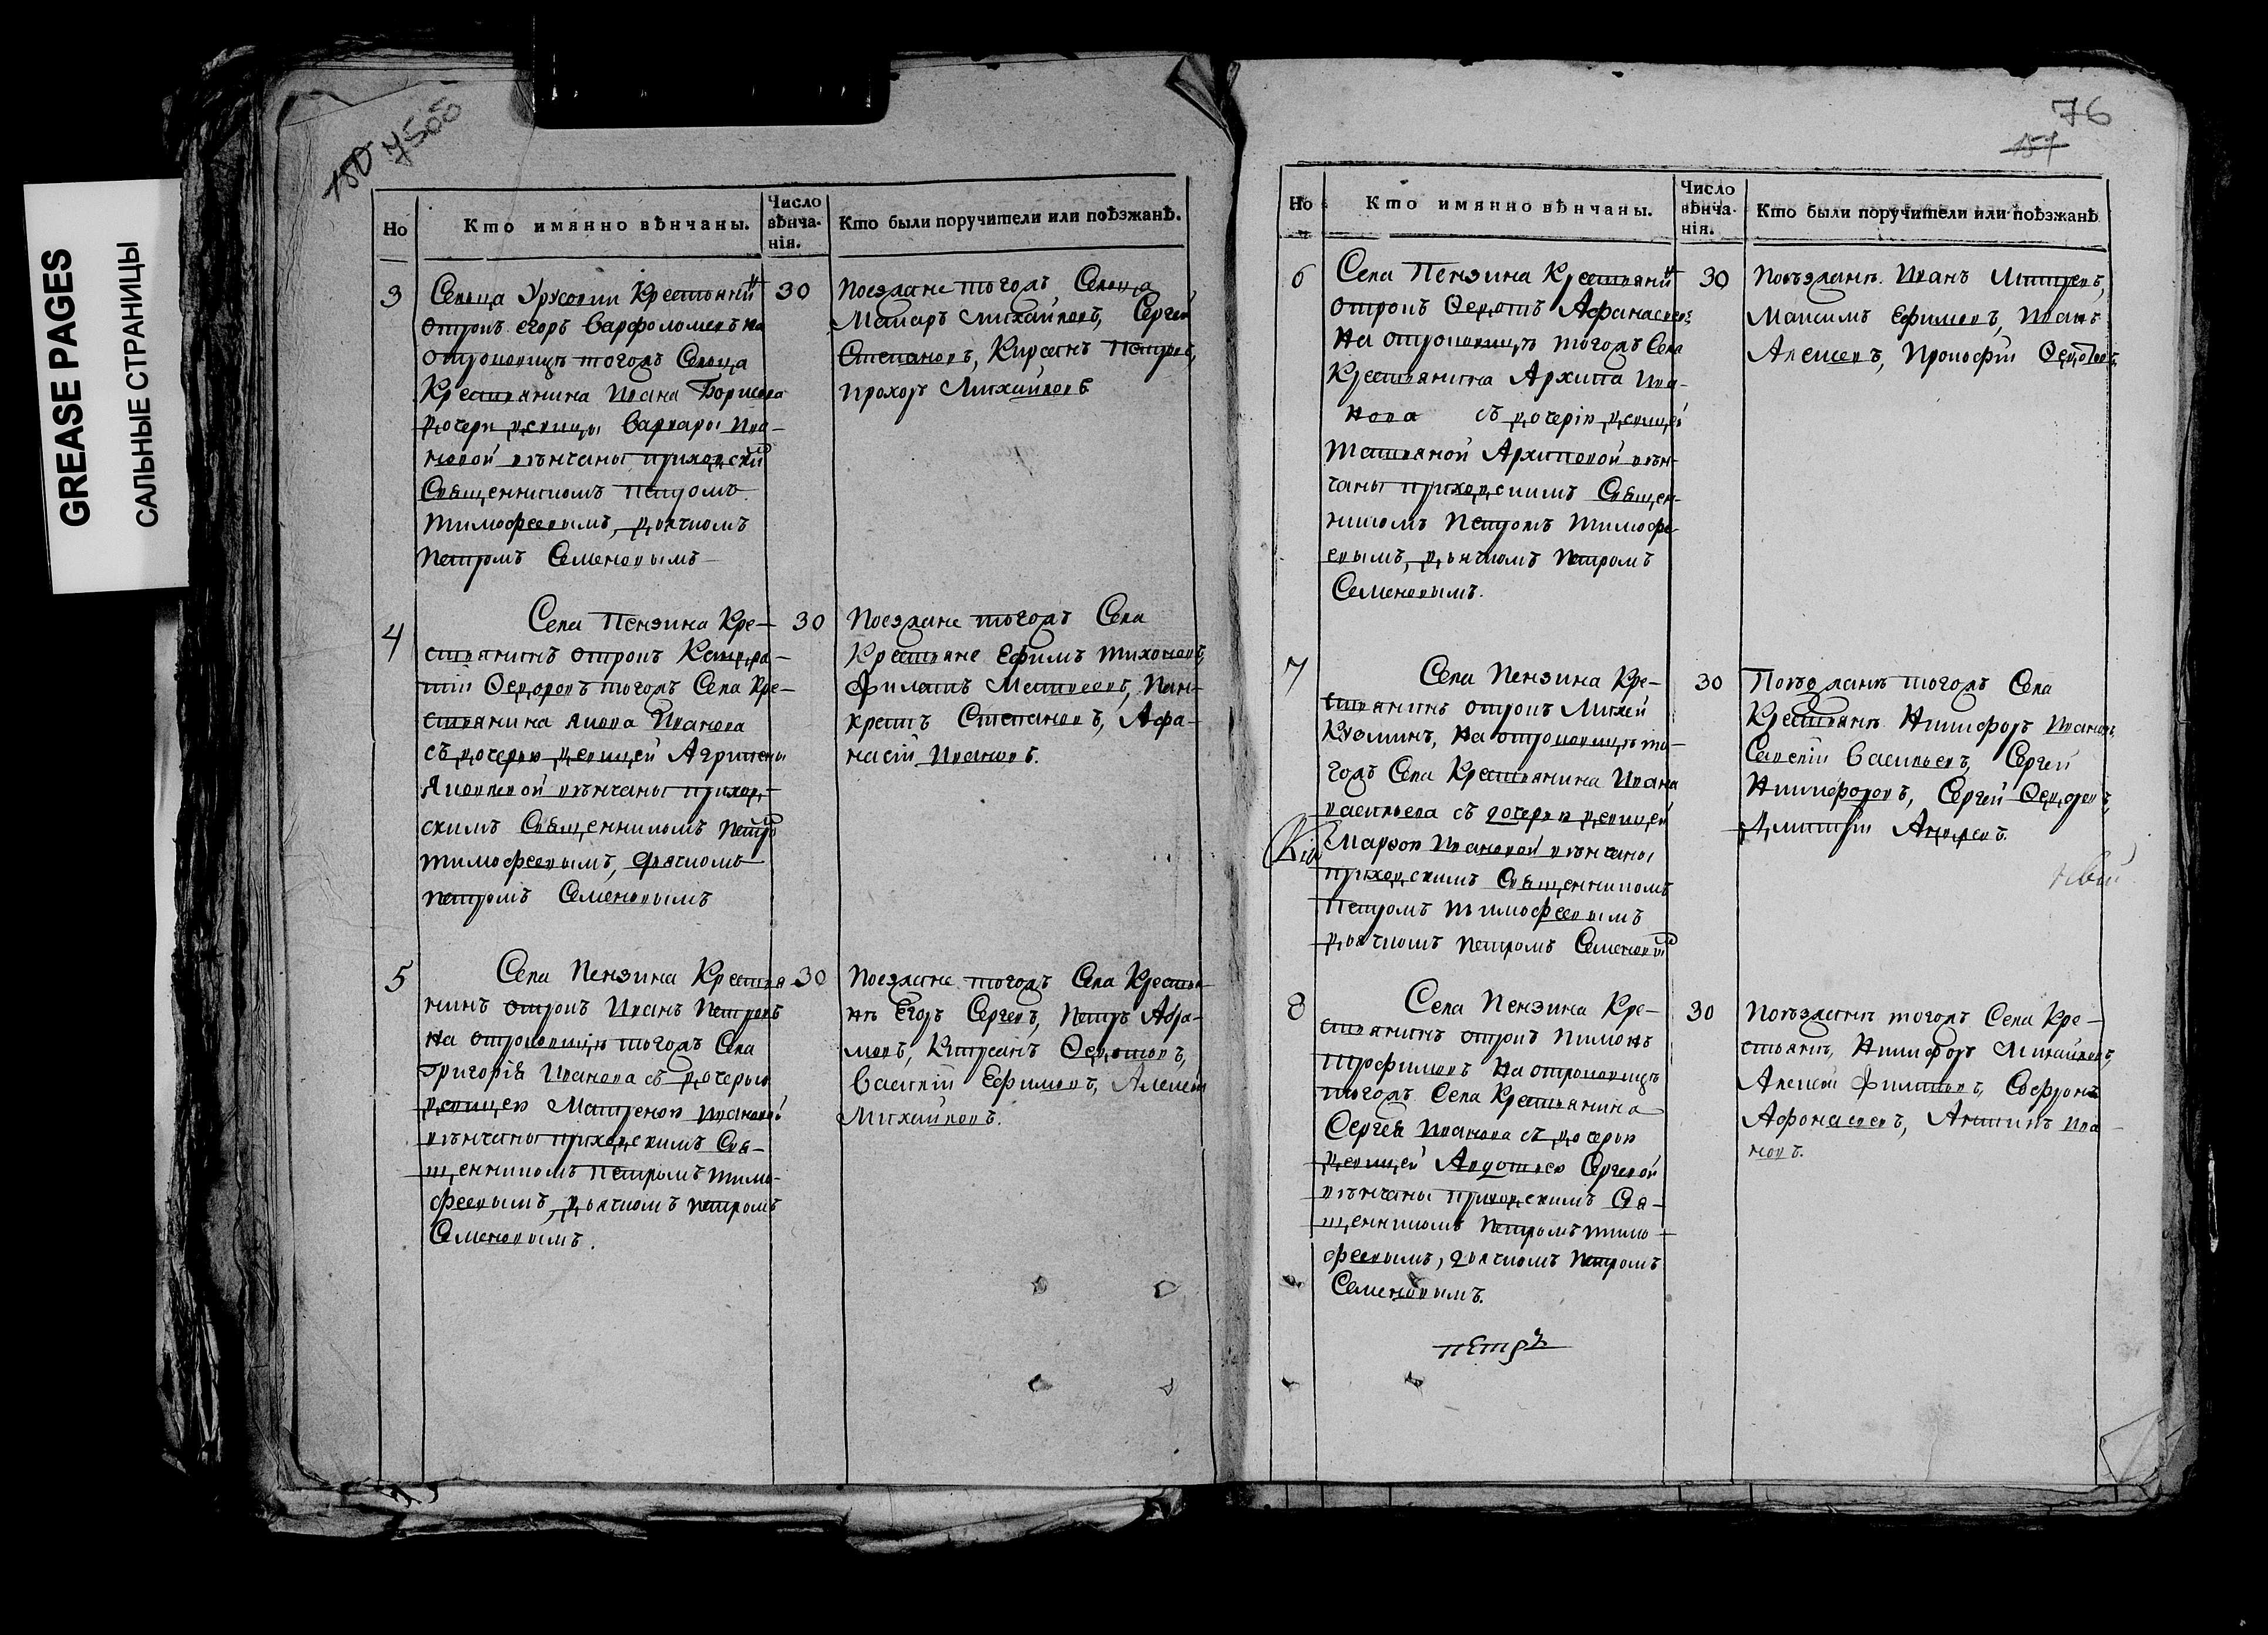 GREASE PAGES
САЛЬНЫЕ СТРАНИЦЫ
Но
Кто имянно вѣнчаны.
Число вѣнча-нія.
Кто были поручители или поѣзжанѣ.
3
Сельца Урусовки Крестьянинъ
отрокъ егоръ варфоломеевъ на
отроковицѣ тогожъ Сельца
Крестьянина Ивана Борисова
дочери девицы варвары Ива-
новой вѣнчаны приходским
Священникомъ петромъ
тимофеевымъ, дьячкомъ
петромъ Семеновымъ
30
Поезжане тогожъ Сельца
Макаръ михайловъ, Сергей
Степановъ, Кирсанъ петровъ,
прохоръ Михайловъ
4
Села Пензина Кре-
стьянинъ отрокъ
Ѳедоровъ тогожъ Села Кре-
стьянина якова Иванова
съ дочерью девицей Агрипены
Яковлевой вѣнчаны приход-
скимъ Священникомъ петро
тимофеевымъ, дьячкомъ
петромъ Семеновымъ
30
Поезжане тогожъ Села
Крестьяне Ефимъ тихоновъ,
филатъ Матвеевъ, Пан-
кратъ Степановъ, Афа-
насій Ивановъ.
5
Села Пензина Крестья
нинъ отрокъ Иванъ Петровъ
на отроковицѣ тогожъ Села
Григорія Иванова съ дочерью
девицею Матреною Ивановой
вѣнчаны приходскимъ Свя-
щенникомъ петромъ тимо-
феевымъ, дьячкомъ петромъ
Семеновымъ.
30
Поезжане тогожъ Села Крестья
нѣ Егоръ Сергеевъ, Петръ Абра-
мовъ, Кирсанъ Ѳедотовъ,
Василій Ефимовъ, Алексей
Михайловъ.
76
157
Но
Кто имянно вѣнчаны.
Число вѣнча-нія.
Кто были поручители или поѣзжанѣ
6
Села Пензина Крестьянинъ
отрокъ Ѳедотъ Афанасьевъ
на отроковицѣ тогожъ Села
Крестьянина Архипа Ива-
нова съ дочерію девицей
татьяной Архиповой вѣн-
чаны приходскимъ Священ-
никомъ Петромъ тимофе
евымъ, дьячкомъ Петромъ
Семеновымъ.
30
Поѣзжанѣ Иванъ Дмитревъ,
Максимъ Ефимовъ, Иванъ
Алексеевъ, Прокофій Ѳедотовъ
7
Села Пензина Кре-
стьянинъ отрокъ Михей
Козминъ, на отроковицѣ то-
гожъ Села Крестьянина Ивана
васильева съ дочерью девицей
Марѳою Ивановой вѣнчаны
приходскимъ Священникомъ
Петромъ тимофеевымъ
дьячкомъ петромъ Семеновы
30
Поѣзжанѣ тогожъ Села
Крестьянѣ Никифоръ Ивановъ,
Савелій васильевъ, Сергей
Никифоровъ, Сергей Ѳедоровъ,
Дмитрій Андреевъ.
8
Села Пензина Кре-
стьянинъ отрокъ Пимонъ
трофимовъ на отроковицѣ
тогожъ Села Крестьянина
Сергея Иванова съ дочерью
девицей Авдотьею Сергевой
вѣнчаны приходскимъ Свя-
щенникомъ петромъ тимо
феевымъ, дьячкомъ петромъ
Семеновымъ.
петръ
30
Поѣзжанѣ тогожъ Села Кре-
стьянѣ, Никифоръ Михайловъ,
Алексей филиповъ, Софронъ
Афонасьевъ, Антипъ Ива
новъ.